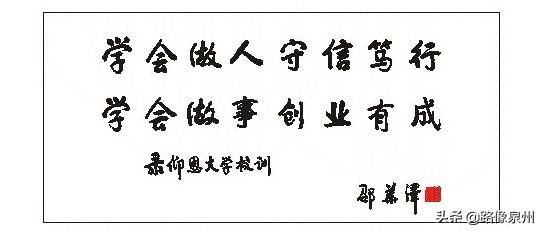 学会做人守信笃行
学会做事创业有成
录仰恩大学校训
邵华泽
头条@路像泉州